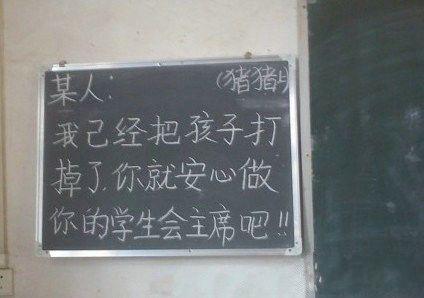 某人： （猪猪
我已经把孩子打
掉了，你就安心做
你的学生会主席吧!!